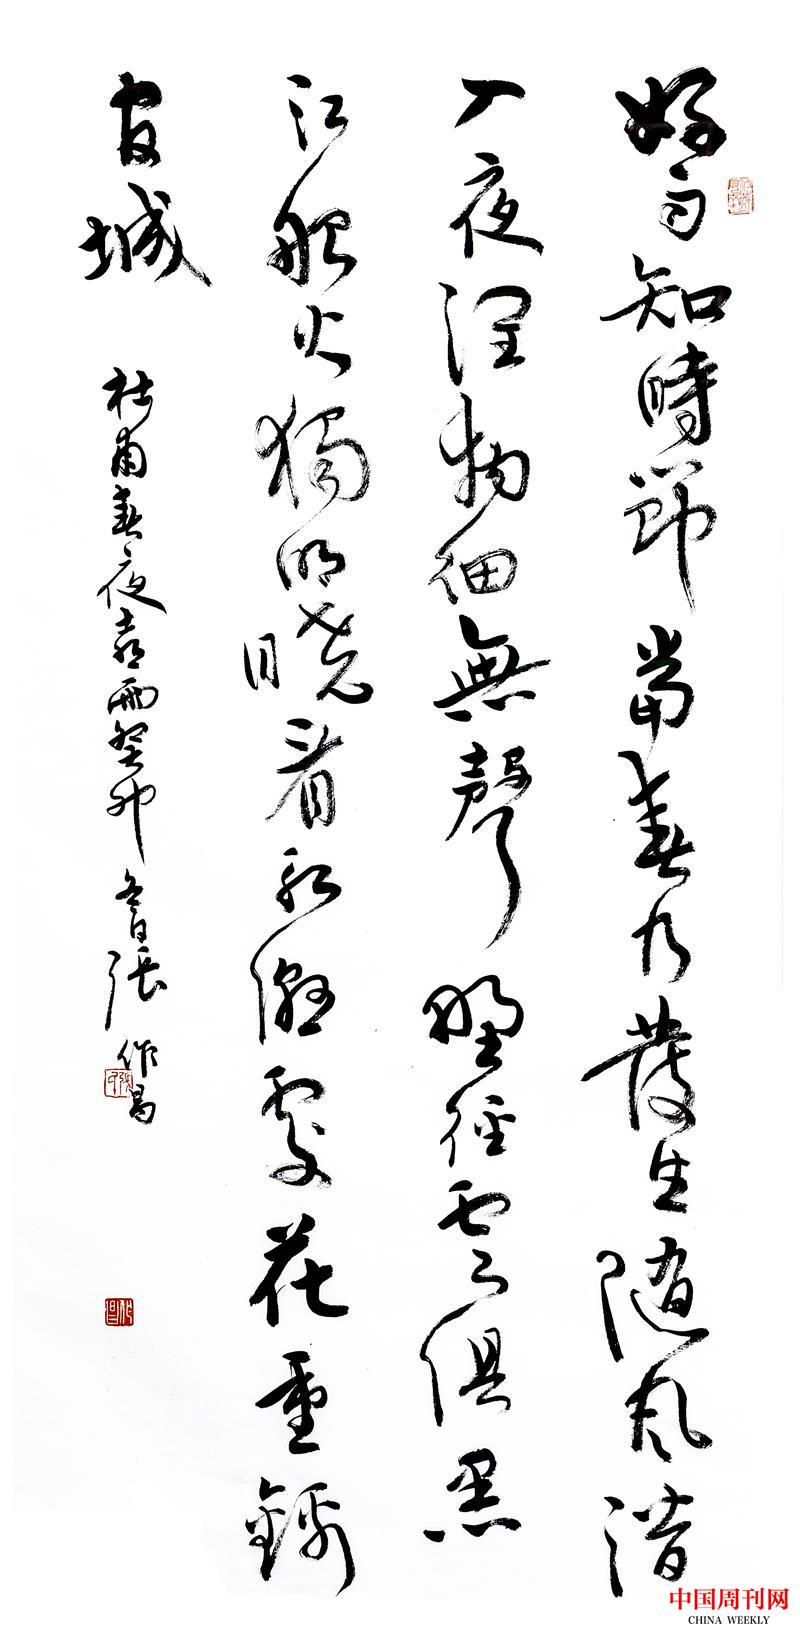 好雨知時節當春乃發生隨風潛
入夜潤物細無聲野徑雲俱黑
江船火獨明曉看紅濕處花重錦
官城
杜甫春夜喜雨癸卯冬日張作昌
中国周刊网
CHINA WEEKLY